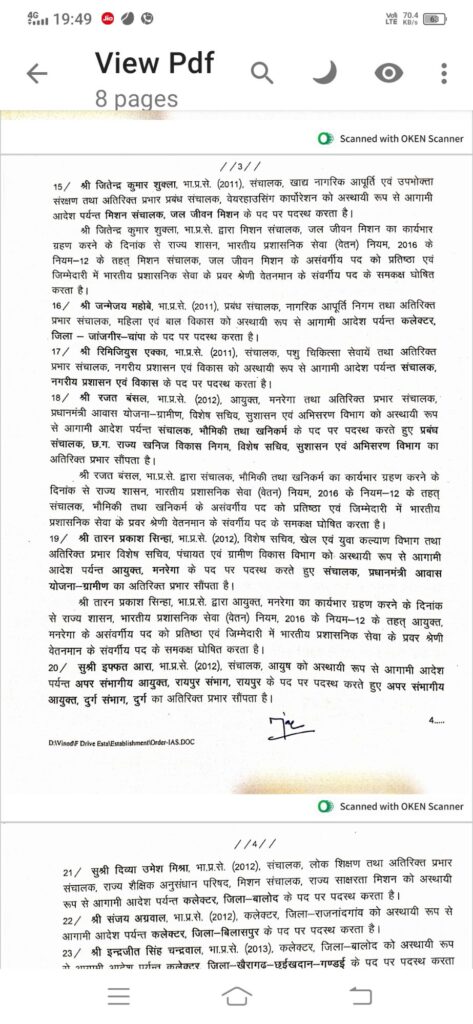 4G 19:49 Jio VoLTE 70.4 KB/s 63
View Pdf
8 pages
Scanned with OKEN Scanner
//3//
15/ श्री जितेन्द्र कुमार शुक्ला, भा.प्र.से. (2011), संचालक, खाद्य नागरिक आपूर्ति एवं उपभोक्ता
संरक्षण तथा अतिरिक्त प्रभार प्रबंध संचालक, वेयरहाउसिंग कार्पोरेशन को अस्थायी रूप से आगामी
आदेश पर्यन्त मिशन संचालक, जल जीवन मिशन के पद पर पदस्थ करता है।
श्री जितेन्द्र कुमार शुक्ला, भा.प्र.से. द्वारा मिशन संचालक, जल जीवन मिशन का कार्यभार
ग्रहण करने के दिनांक से राज्य शासन, भारतीय प्रशासनिक सेवा (वेतन) नियम, 2016 के
नियम–12 के तहत् मिशन संचालक, जल जीवन मिशन के असंवर्गीय पद को प्रतिष्ठा एवं
जिम्मेदारी में भारतीय प्रशासनिक सेवा के प्रवर श्रेणी वेतनमान के संवर्गीय पद के समकक्ष घोषित
करता है।
16/ श्री जन्मेजय महोबे, भा.प्र.से. (2011), प्रबंध संचालक, नागरिक आपूर्ति निगम तथा अतिरिक्त
प्रभार संचालक, महिला एवं बाल विकास को अस्थायी रूप से आगामी आदेश पर्यन्त कलेक्टर,
जिला – जांजगीर–चांपा के पद पर पदस्थ करता है।
17/ श्री रिमिजियुस एक्का, भा.प्र.से. (2011), संचालक, पशु चिकित्सा सेवायें तथा अतिरिक्त
प्रभार संचालक, नगरीय प्रशासन एवं विकास को अस्थायी रूप से आगामी आदेश पर्यन्त संचालक,
नगरीय प्रशासन एवं विकास के पद पर पदस्थ करता है।
18/ श्री रजत बंसल, भा.प्र.से. (2012), आयुक्त, मनरेगा तथा अतिरिक्त प्रभार संचालक,
प्रधानमंत्री आवास योजना–ग्रामीण, विशेष सचिव, सुशासन एवं अभिसरण विभाग को अस्थायी रूप
से आगामी आदेश पर्यन्त संचालक, भौमिकी तथा खनिकर्म के पद पर पदस्थ करते हुए प्रबंध
संचालक, छ.ग. राज्य खनिज विकास निगम, विशेष सचिव, सुशासन एवं अभिसरण विभाग का
अतिरिक्त प्रभार सौंपता है।
श्री रजत बंसल, भा.प्र.से. द्वारा संचालक, भौमिकी तथा खनिकर्म का कार्यभार ग्रहण करने के
दिनांक से राज्य शासन, भारतीय प्रशासनिक सेवा (वेतन) नियम, 2016 के नियम–12 के तहत्
संचालक, भौमिकी तथा खनिकर्म के असंवर्गीय पद को प्रतिष्ठा एवं जिम्मेदारी में भारतीय
प्रशासनिक सेवा के प्रवर श्रेणी वेतनमान के संवर्गीय पद के समकक्ष घोषित करता है।
19/ श्री तारन प्रकाश सिन्हा, भा.प्र.से. (2012), विशेष सचिव, खेल एवं युवा कल्याण विभाग तथा
अतिरिक्त प्रभार विशेष सचिव, पंचायत एवं ग्रामीण विकास विभाग को अस्थायी रूप से आगामी
आदेश पर्यन्त आयुक्त, मनरेगा के पद पर पदस्थ करते हुए संचालक, प्रधानमंत्री आवास
योजना–ग्रामीण का अतिरिक्त प्रभार सौंपता है।
श्री तारन प्रकाश सिन्हा, भा.प्र.से. द्वारा आयुक्त, मनरेगा का कार्यभार ग्रहण करने के दिनांक
से राज्य शासन, भारतीय प्रशासनिक सेवा (वेतन) नियम, 2016 के नियम–12 के तहत् आयुक्त,
मनरेगा के असंवर्गीय पद को प्रतिष्ठा एवं जिम्मेदारी में भारतीय प्रशासनिक सेवा के प्रवर श्रेणी
वेतनमान के संवर्गीय पद के समकक्ष घोषित करता है।
20/ सुश्री इफ्फत आरा, भा.प्र.से. (2012), संचालक, आयुष को अस्थायी रूप से आगामी आदेश
पर्यन्त अपर संभागीय आयुक्त, रायपुर संभाग, रायपुर के पद पर पदस्थ करते हुए अपर संभागीय
आयुक्त, दुर्ग संभाग, दुर्ग का अतिरिक्त प्रभार सौंपता है।
4.....
D:\Vinod\F Drive Esta\Establishment\Order-IAS.DOC
Scanned with OKEN Scanner
//4//
21/ सुश्री दिव्या उमेश मिश्रा, भा.प्र.से. (2012), संचालक, लोक शिक्षण तथा अतिरिक्त प्रभार
संचालक, राज्य शैक्षिक अनुसंधान परिषद, मिशन संचालक, राज्य साक्षरता मिशन को अस्थायी
रूप से आगामी आदेश पर्यन्त कलेक्टर, जिला–बालोद के पद पर पदस्थ करता है।
22/ श्री संजय अग्रवाल, भा.प्र.से. (2012), कलेक्टर, जिला–राजनांदगांव को अस्थायी रूप से
आगामी आदेश पर्यन्त कलेक्टर, जिला–बिलासपुर के पद पर पदस्थ करता है।
23/ श्री इन्द्रजीत सिंह चन्द्रवाल, भा.प्र.से. (2013), कलेक्टर, जिला–बालोद को अस्थायी रूप
से आगामी आदेश पर्यन्त कलेक्टर, जिला–खैरागढ–छुईखदान–गण्डई के पद पर पदस्थ करता